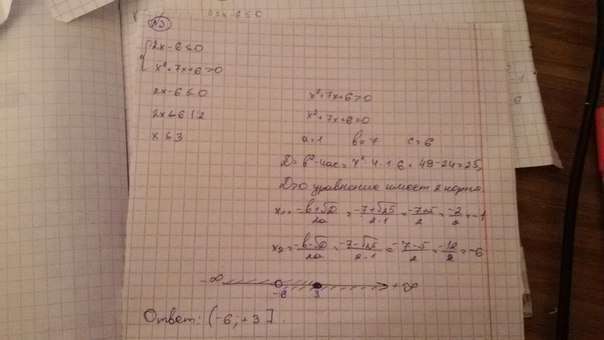 №3
2x-6≤0
x²+7x+6>0
2x-6≤0
2x≤6 | 2
x≤3
x²+7x+6>0
x²+7x+6=0
a=1 b=7 c=6
D=b²-4ac=7²-4·1·6=49-24=25,
D>0 уравнение имеет 2 корня.
x₁=-b+√D/2a=-7+√25/2·1=-7+5/2=-2/2=-1
x₂=-b-√D/2a=-7-√25/2·1=-7-5/2=-12/2=-6
-∞ -6 3 +∞
Ответ: (-6;+3].